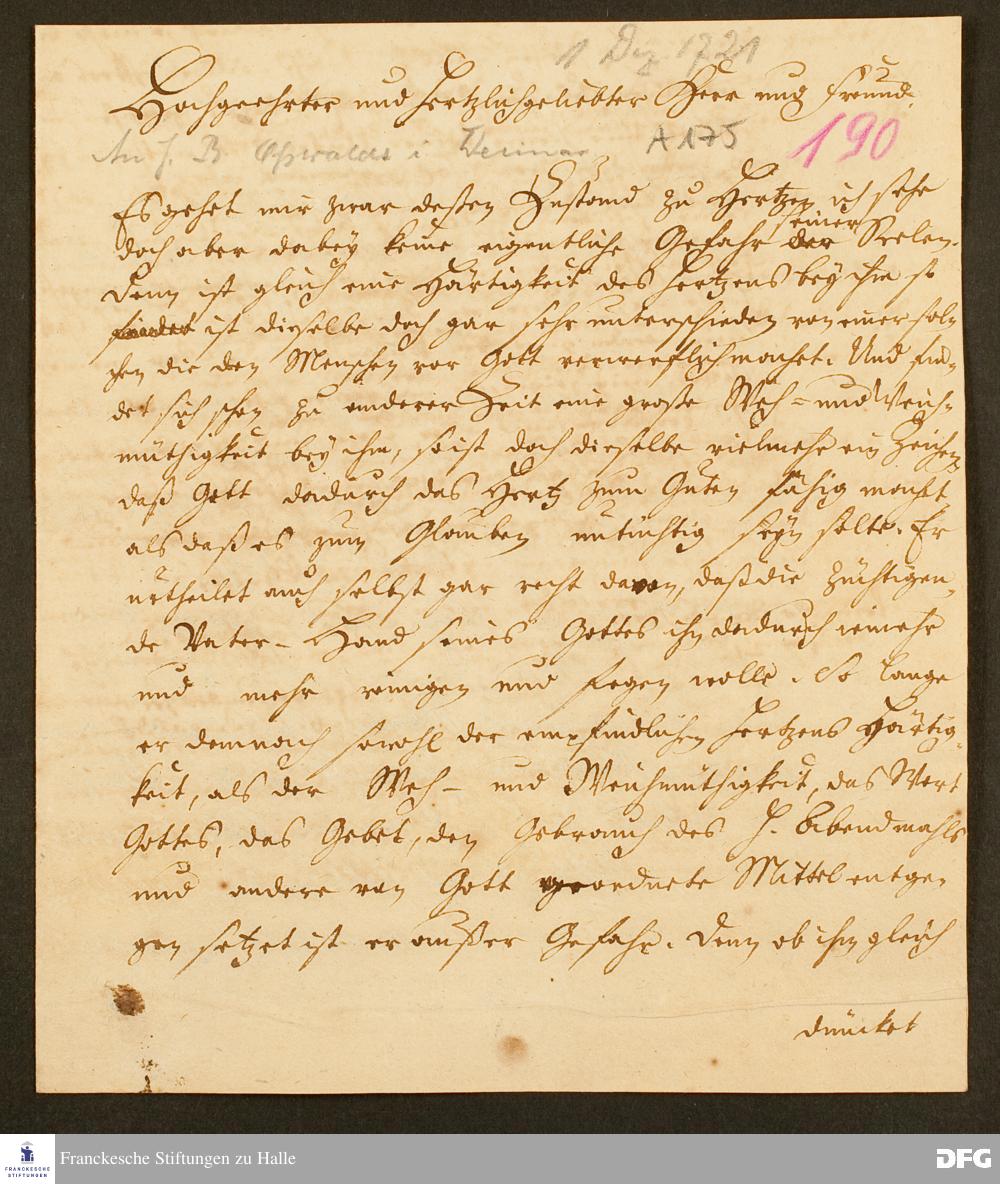 1 Dez 1721
Hochgeehrter und Hertzlichgeliebter Herr und Freund.
An J. B. Oswalds i Weimar A 175 190
Es gehet mir zwar deßen Zustand zu Hertzen, ich sehe
doch aber dabey keine eigentliche Gefahr seiner Seelen.
Denn ist gleich eine Härtigkeit des Hertzens bey ihm so
findet ist dieselbe doch gar sehr unterschieden von einer sol-
chen die den Menschen vor Gott verwerflich machet. Und fin-
det sich schon zu anderer Zeit eine große Weh- und Weich-
müthigkeit bey ihm, so ist doch dieselbe vielmehr ein Zeichen
daß Gott dadurch das Hertz zum Guten fähig machet
als daß es zum Glauben untüchtig seyn solte. Er
urtheilet auch selbst gar recht davon, daß die züchtigen-
de Vater-Hand seines Gottes ihn dadurch iemehr
und mehr reinigen und fegen wolle. So lange
er demnach sowohl der empfindlichen Hertzens Härtig-
keit, als der Weh- und Weichmüthigkeit, das Wort
Gottes, das Gebet, den Gebrauch des H. Abendmahls
und andere von Gott geordnete Mittel entge-
gen setzet ist er außer Gefahr. Denn ob ihn gleich
drücket
FRANCKESCHE STIFTUNGEN
Franckesche Stiftungen zu Halle
DFG